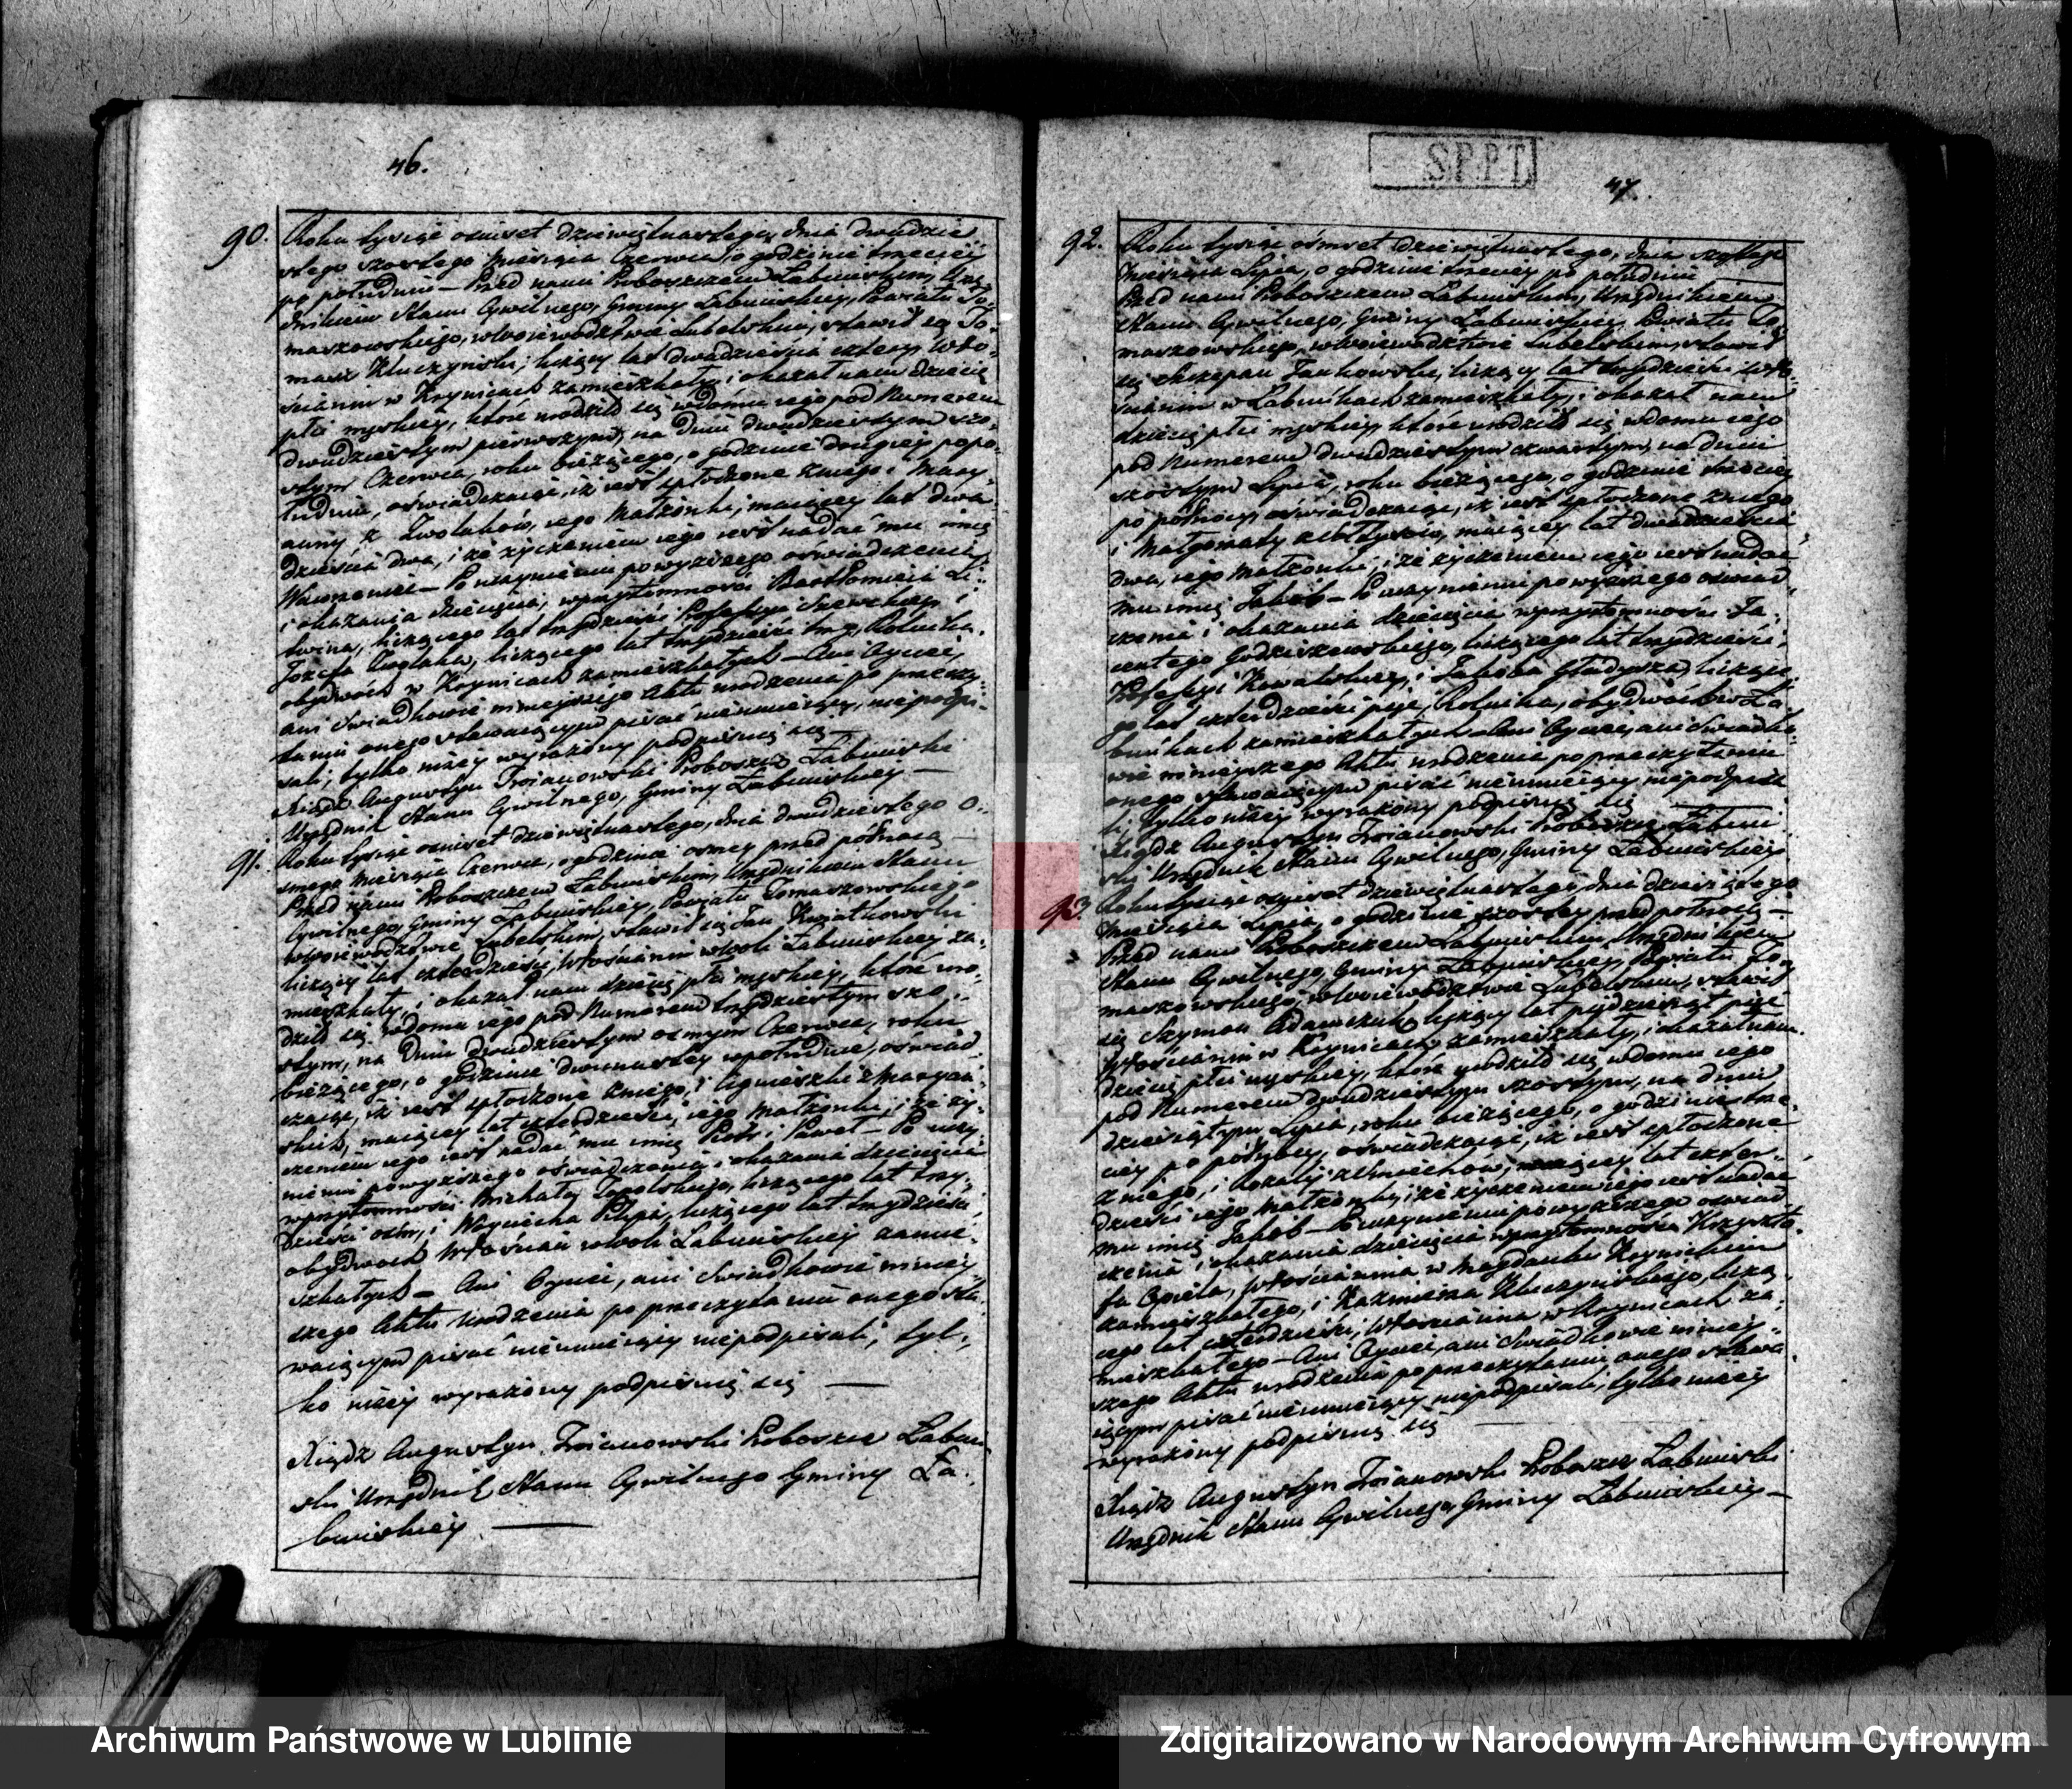 46.
90. Roku tysiąc ośmset dziewiętnastego, dnia dwudzie
stego szostego Miesiąca Czerwca, o godzinie trzeciey
po południu – Przed nami Proboszczem Łabuńskim, Urzę
dnikiem Stanu Cywilnego, Gminy Łabuńskiey, Powiatu To,
maszowskiego, w Woiewodztwie Lubelskim, stawił się To,
masz Kluczyński, liczący lat dwadzieścia cztery, Wło,
ścianin w Krynicach zamieszkały, i okazał nam dziecię
płci męskiey, które urodziło się w domu iego pod Numerem
dwudziestym pierwszym, na dniu dwudziestym szo,
stym Czerwca, roku bieżącego, o godzinie drugiey popo,
łudniu, oświadczaiąc, iż iest spłodzone z niego i Mary,
anny z Zwolaków, iego Małżonki, maiącey lat dwa
dzieścia dwa, i że życzeniem iego iest nadać mu imię
Wawrzeniec – Po uczynieniu powyższego oświadczenia
i okazania dziecięcia, w przytomności Bartłomieia Li,
twina, liczącego lat trzydzieści Professyi Szewckiey i
Jozefa Zwolaka, liczącego lat trzydzieści trzy, Rolnika,
obydwóch w Krynicach zamieszkałych – Ani Oyciec,
ani Swiadkowie ninieyszego Aktu urodzenia po przeczy,
taniu onego stawaiącym pisać nieumieiący, niepodpi,
sali, tylko niżey wyrażony podpisuię się –
Xiądz Augustyn Troianowski Proboszcz Łabuński
Urzędnik Stanu Cywilnego, Gminy Łabuńskiey –
91. Roku tysiąc ośmset dziewiętnastego, dnia dwudziestego o,
smego Miesiąca Czerwca, o godzinie osmey przed północą –
Przed nami Proboszczem Łabuńskim, Urzędnikiem Stanu
Cywilnego, Gminy Łabuńskiey, Powiatu Tomaszowskiego
w Woiewodztwie Lubelskim, stawił się Jan Kwiatkowski
liczący lat czterdzieści, Włościanin w Woli Łabuńskiey za,
mieszkały, i okazał nam dziecię płci męskiey, które uro,
dziło się w domu iego pod Numerem trzydziestym szo,
stym, na dniu dwudziestym osmym Czerwca, roku
bieżącego, o godzinie dwunastey w południe, oświad
czaiąc, iż iest spłodzone z niego, i Agnieszki z Maryań,
skich, maiącey lat czterdzieści, iego Małżonki, i że ży,
czeniem iego iest nadać mu imię Piotr i Paweł – Po uczy
nieniu powyższego oświadczenia i okazania dziecięcia
w przytomności Michała Topolskiego, liczącego lat trzy,
dzieści osm, i Woyciecha Pilipa, liczącego lat trzydzieści,
obydwóch Włościan w Woli Łabuńskiey zamie,
szkałych – Ani Oyciec, ani Swiadkowie niniey,
szego Aktu urodzenia po przeczytaniu onego sta,
waiącym pisać nieumieiący niepodpisali, tyl,
ko niżey wyrażony podpisuię się –
Xiądz Augustyn Troianowski Proboszcz Łabuń
ski Urzędnik Stanu Cywilnego Gminy Ła,
buńskiey –
S.P.P.T.
47.
92. Roku tysiąc ośmset dziewiętnastego, dnia szostego
Miesiąca Lipca, o godzinie trzeciey po południu –
Przed nami Proboszczem Łabuńskim, Urzędnikiem
Stanu Cywilnego, Gminy Łabuńskiey, Powiatu To,
maszowskiego, w Woiewodztwie Lubelskim, stawił
się Szczepan Jankowski, liczący lat trzydzieści, Wło,
ścianin w Łabuńkach zamieszkały, i okazał nam
dziecię płci męskiey, które urodziło się w domu iego
pod Numerem dwudziestym czwartym, na dniu
szostym Lipca, roku bieżącego, o godzinie trzeciey
po północy, oświadczaiąc, iż iest spłodzone z niego
i Małgorzaty z maiącey lat dwadzieścia
dwa, iego Małżonki, i że życzeniem iego iest nadać
mu imię Jakób – Po uczynieniu powyższego oświad,
czenia i okazania dziecięcia w przytomności Ja,
centego Godziszewskiego, liczącego lat trzydzieści,
Professyi Kowalskiey, i Jakoba Gładysza, liczące
go lat czterdzieści pięć, Rolnika, obydwóch w Ła,
buńkach zamieszkałych – Ani Oyciec, ani Swiadko,
wie ninieyszego Aktu urodzenia po przeczytaniu
onego stawaiącym pisać nieumieiący niepodpisa
li, tylko niżey wyrażony podpisuię się –
Xiądz Augustyn Troianowski Proboszcz Łabuń,
ski Urzędnik Stanu Cywilnego, Gminy Łabuńskiey
93. Roku tysiąc ośmset dziewiętnastego, dnia dziesiątego
Miesiąca Lipca, o godzinie szostey przed północą –
Przed nami Proboszczem Łabuńskim, Urzędnikiem
Stanu Cywilnego, Gminy Łabuńskiey, Powiatu To,
maszowskiego, w Woiewodztwie Lubelskim, stawił
się Szymon Adamczuk, liczący lat pięćdziesiąt pięć
Włościanin w Krynicach zamieszkały, i okazał nam
dziecię płci męskiey, które urodziło się w domu iego
pod Numerem dwudziestym szostym, na dniu
dziesiątym Lipca, roku bieżącego, o godzinie trze,
ciey po północy, oświadczaiąc, iż iest spłodzone
z niego, i Rozalii z maiącey lat czter,
dzieści iego Małżonki, i że życzeniem iego iest nadać
mu imię Jakób – Po uczynieniu powyższego oświad
czenia i okazania dziecięcia w przytomności Krzyszto,
fa Włościanina w Maydanku Krynickim
zamieszkałego, i Kazimierza Kluczyńskiego, liczą,
cego lat czterdzieści, Włościanina w Krynicach za,
mieszkałego – Ani Oyciec, ani Swiadkowie niniey,
szego Aktu urodzenia po przeczytaniu onego stawa
iącym pisać nieumieiący niepodpisali, tylko niżey
wyrażony podpisuię się
Xiądz Augustyn Troianowski Proboszcz Łabuński
Urzędnik Stanu Cywilnego, Gminy Łabuńskiey –
Archiwum Państwowe w Lublinie
Zdigitalizowano w Narodowym Archiwum Cyfrowym